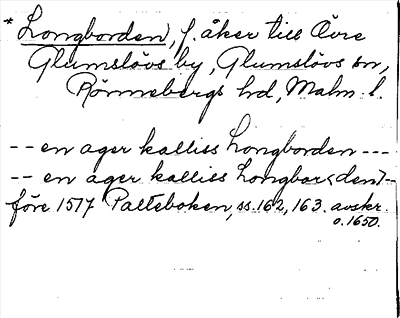 * Longborden, f. åker till Övre
Glumslövs by, Glumslövs sn,
Rönnebergs hd, Malm. l.
-- en ager kalliss Longborden ---
-- en ager kalliss Longbor<den> --
före 1517 Palteboken, ss. 162, 163. avskr.
o. 1650.